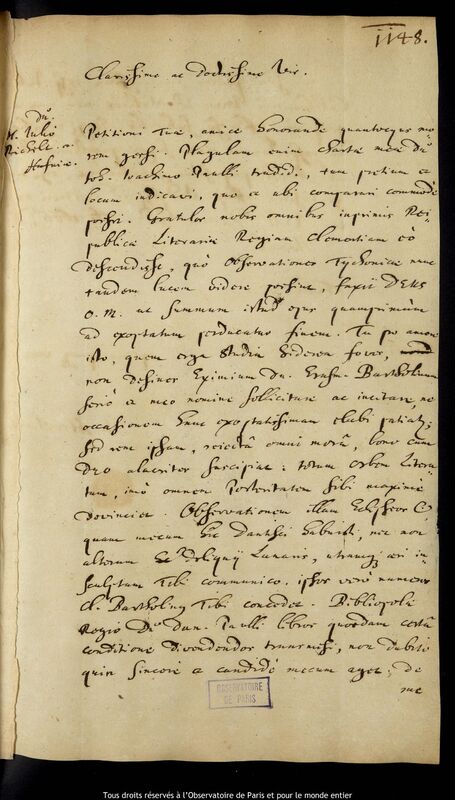 1148.
Clarissime ac Doctissime Vir.
Petitioni Tuæ, amice honorande quantocyus mo
rem gessi. Plagulam enim chartæ meæ dn̄o
Ioachimo Paulli tradidi, tum pretium a
locum indicavi, quo a ubi comparari commodè
possit. Gratulor nobis omnibus inprimis Rei-
publicæ Literariæ Regiam Clementiam eò
descendisse, quò Observationes Tychonicæ nunc
tandem lucem videre possint, faxit DEUS
O. M. ut summum istud opus quamprimùm
ad exoptatum perducatur finem. Tu pro amore
isto, quem erga studia siderea foves,
non desines Eximium dn. Erasm. Bartholinum
seriò a meo nomine sollicitare ac incitare, ne
occasionem hanc exoptatissimam elabi patiat;
sed rem ipsam, rejectâ omni morâ, bono cum
DEO alacriter suscipiat: totum orbem Litera-
tum, imò omnem Posteritatem sibi maximè
devinciet. Observationem illam Eclipseos ☾,
quam mecum hic Dantisci habuisti, nec non
alterum Deliquij Lunaris, utramq; æri in-
sculptam Tibi communico, ipsos verò numeros
Cl. Bartholinus Tibi concedet. Bibliopolæ
Regio Dn. Dan. Paulli libros quosdam certâ
conditione divendendos transmisi, non dubito
quin sincerè a candidè mecum aget; de
me
dn̄o
Julio
Hafniæ.
OBSERVATOIRE
DE PARIS
Tous droits réservés à l'Observatoire de Paris et pour le monde entier